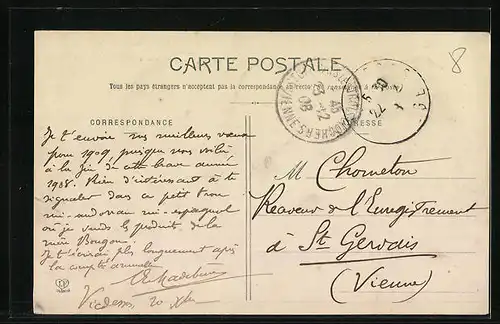 8
CARTE POSTALE
Tous les pays étrangers n'acceptent pas la correspondance au recto
CORRESPONDANCE
ADRESSE
Je t'envoie mes meilleurs vœux
pour 1909 puisque nous voilà
à la fin de cette brave année
1908. Rien d'intéressant à te
signaler dans ce petit trou
mi-andorran mi-espagnol
où je vends le produit de la
mère Bougon.
Je t'écrirai plus longuement après
Vicdessos 20 Xbre
M Chometon
Receveur de l'Enregistrement
à St Gervais
(Vienne)
23 -12
08